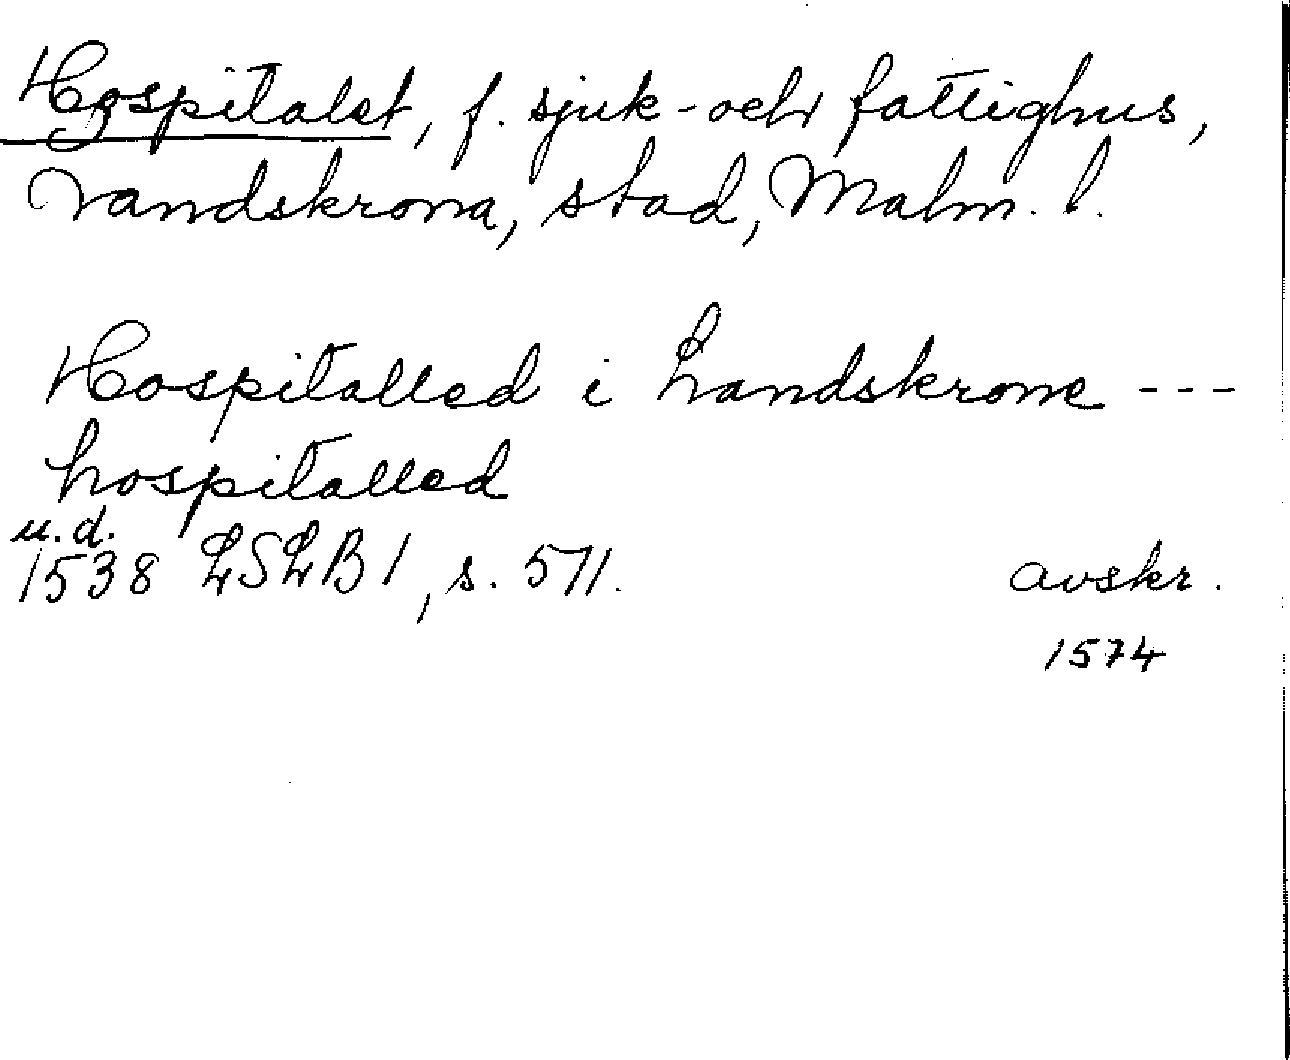 Hospitalet, f. sjuk- och fattighus,
Landskrona, stad, Malm. l.
Hospitalled i Landskrone ---
hospitalled
u.d.
1538 LSLB 1, s. 571. avskr.
1574